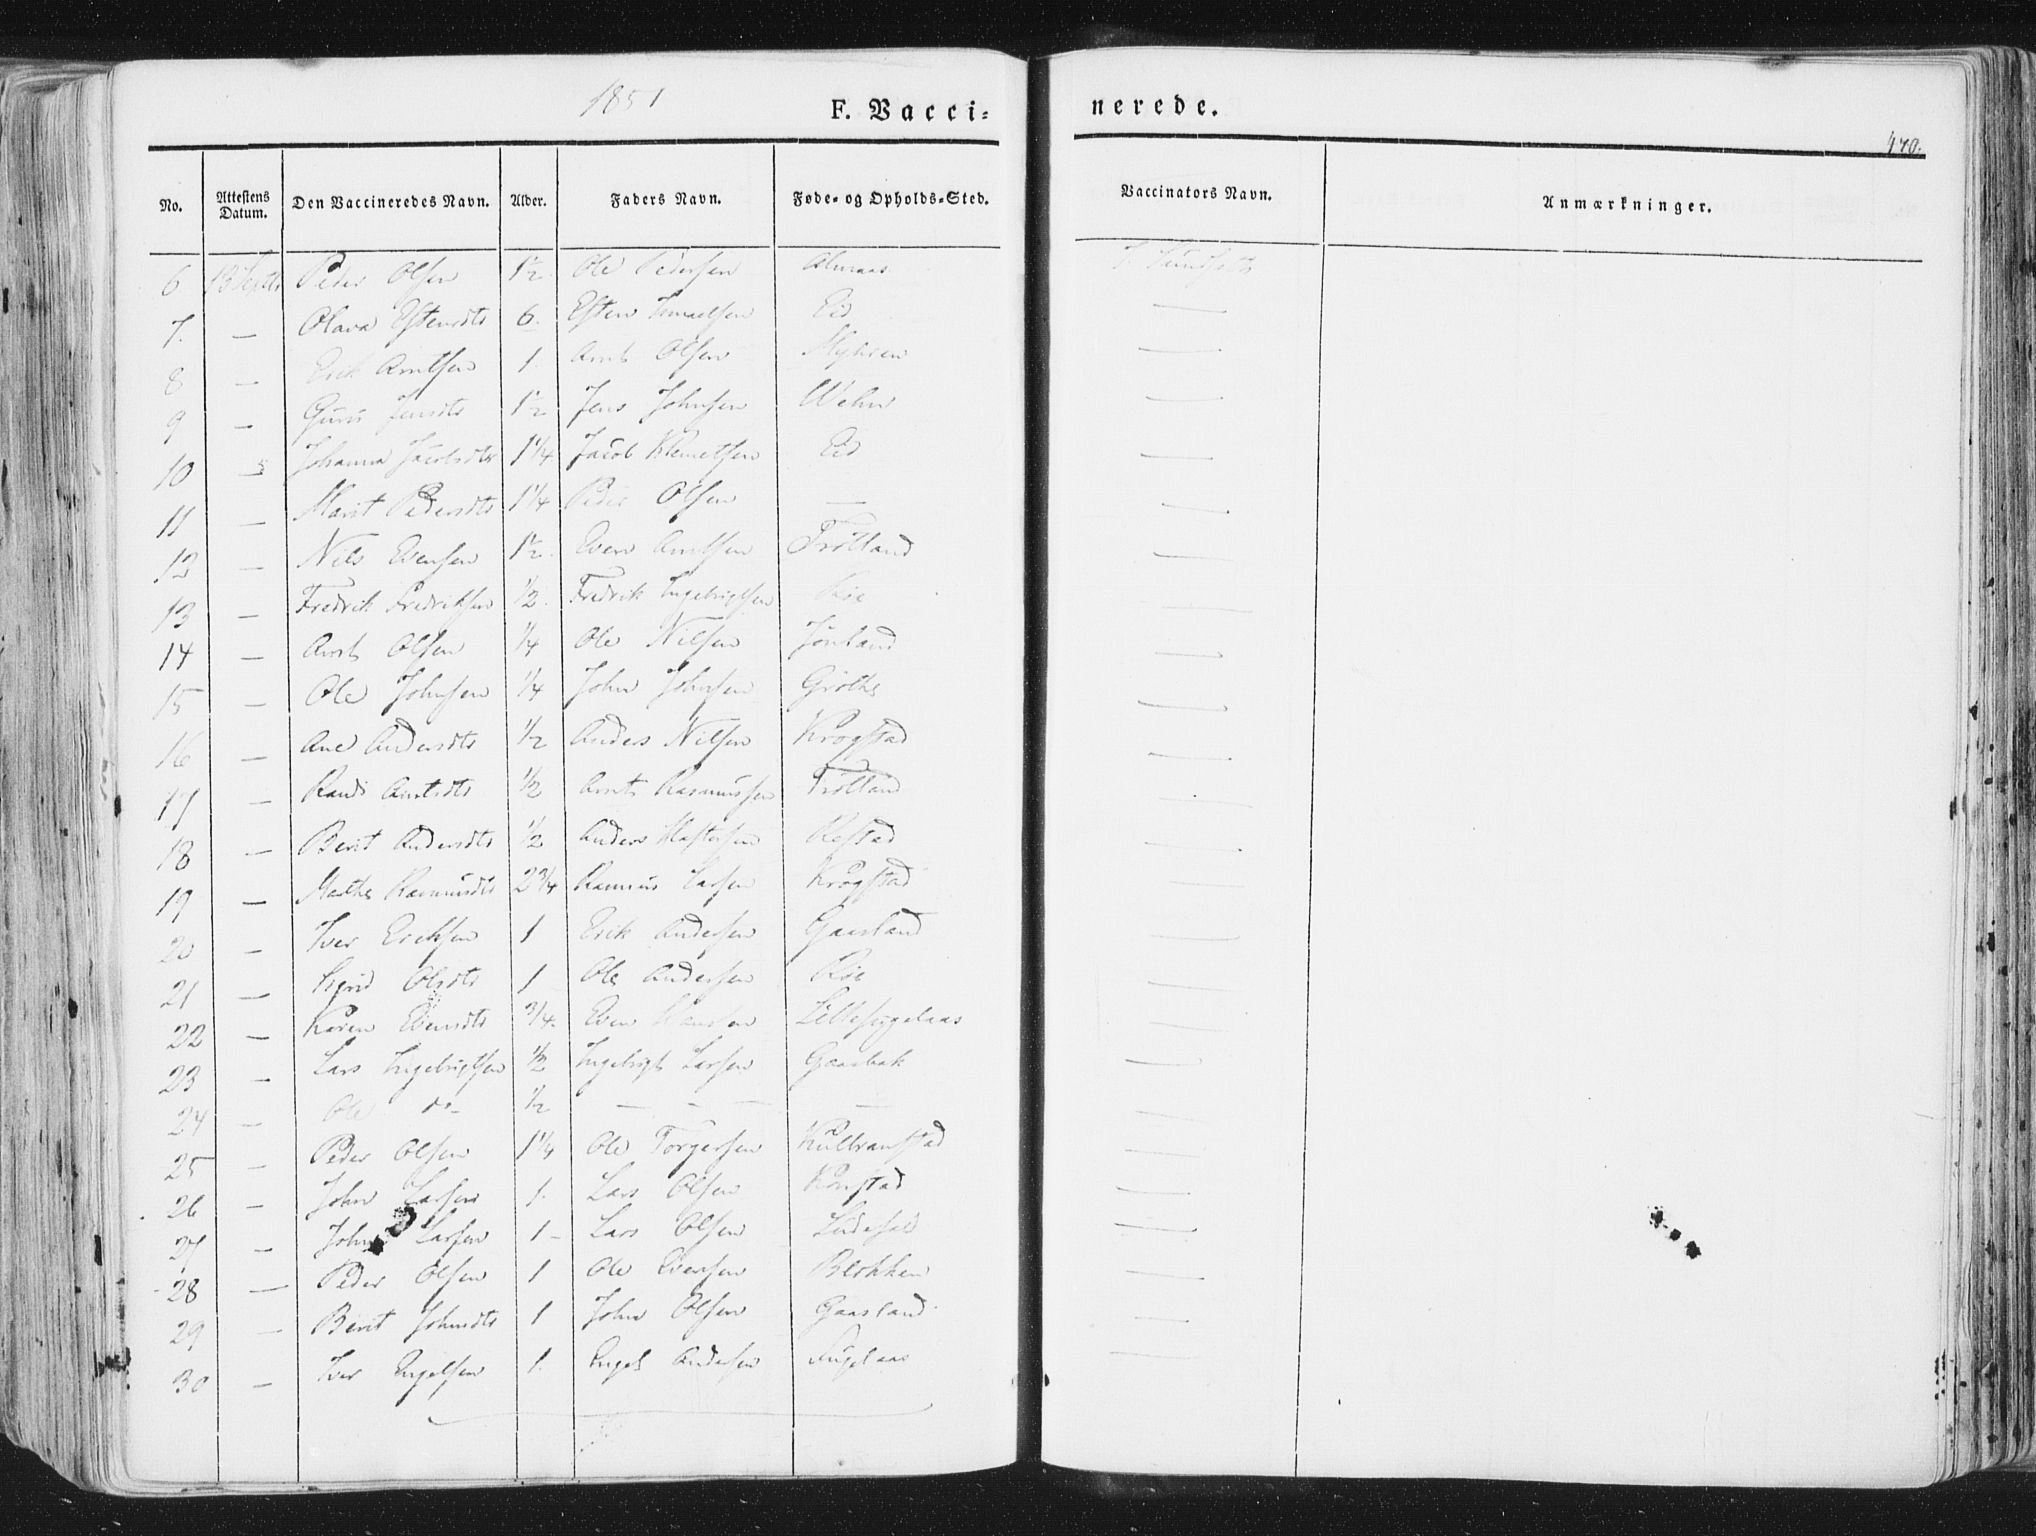 1851
F. Vacci=
nerede.
470.
No. Attestens Datum. Den Vaccineredes Navn. Alder. Faders Navn. Føde= og Opholds=Sted. Vaccinators Navn. Anmærkninger.
6 13 Septbr Peder Olsen 1½ Ole Pedersen Almaas
7. — Olava Estensdtr 6. Esten Eid —
8 — Erik Arntsen 1. Arnt Olsen Myhren —
9 — Guru Jensdtr 1½ Jens Johnsen Wehn —
10 — Johanna Jacobsdtr 1¼ Jacob Klemetsen Eid —
11 — Marit Pedersdtr 1¼ Peder Olsen — —
12 — Nils Evensen 1½. Even Arntsen Frøtland —
13 — Fredrik Fredriksen ½. Fredrik Ingebrigtsen Røe —
14 — Arnt Olsen ¼ Ole Nilsen —
15 — Ole Johnsen ¼ John Johnsen Grøthe —
16 — Ane Andersdtr ½ Anders Nilsen Krogstad —
17 — Randi Arntsdtr ½ Arnt Rasmussen Frøtland —
18 — Berit Andersdtr ½ Anders Restad —
19 — Marthe Rasmusdtr 2¾ Rasmus Larsen Krogstad —
20 — Iver Eriksen 1 Erik Andersen Gaasland —
21 — Olsdtr 1 Ole Andersen Røe —
22 — Karen Evensdtr ¾. Even Hansen —
23 — Lars Ingebrigtsen ½ Ingebrigt Larsen Gaasbak —
24 — Ole do ½ — — — — —
25 — Peder Olsen 1¼ Ole Torgersen —
26 — John Larsen 1. Lars Olsen Kønstad —
27 — John Larsen 1 — Lars Olsen —
28 — Peder Olsen 1 Ole Evensen Blokken —
29 — Berit Johnsdtr 1 John Olsen Gaasland —
30 — Iver Engelsen 1. Engel Andersen Fuglaas —